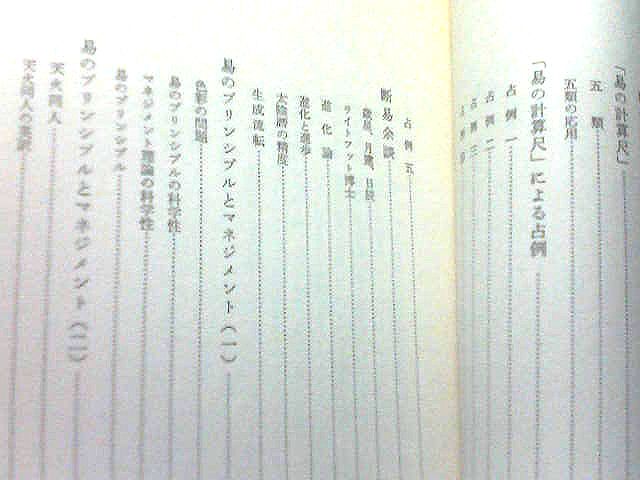 「易の計算尺」
五類
五類の応用
「易の計算尺」による占例
占例一
占例二
占例三
占例五
断易余談
歳星、月鷺、日説
ライトフット博士
進化論
進化と進歩
太陰暦の精度
生成流転
易のプリンシプルとマネジメント(一)
色彩の問題
易のプリンシプルの科学性
マネジメント理論の科学性
易のプリンシプル
易のプリンシプルとマネジメント(二)
天火同人
天火同人の意訳